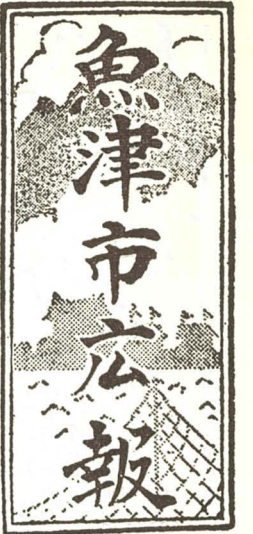 魚津市広報